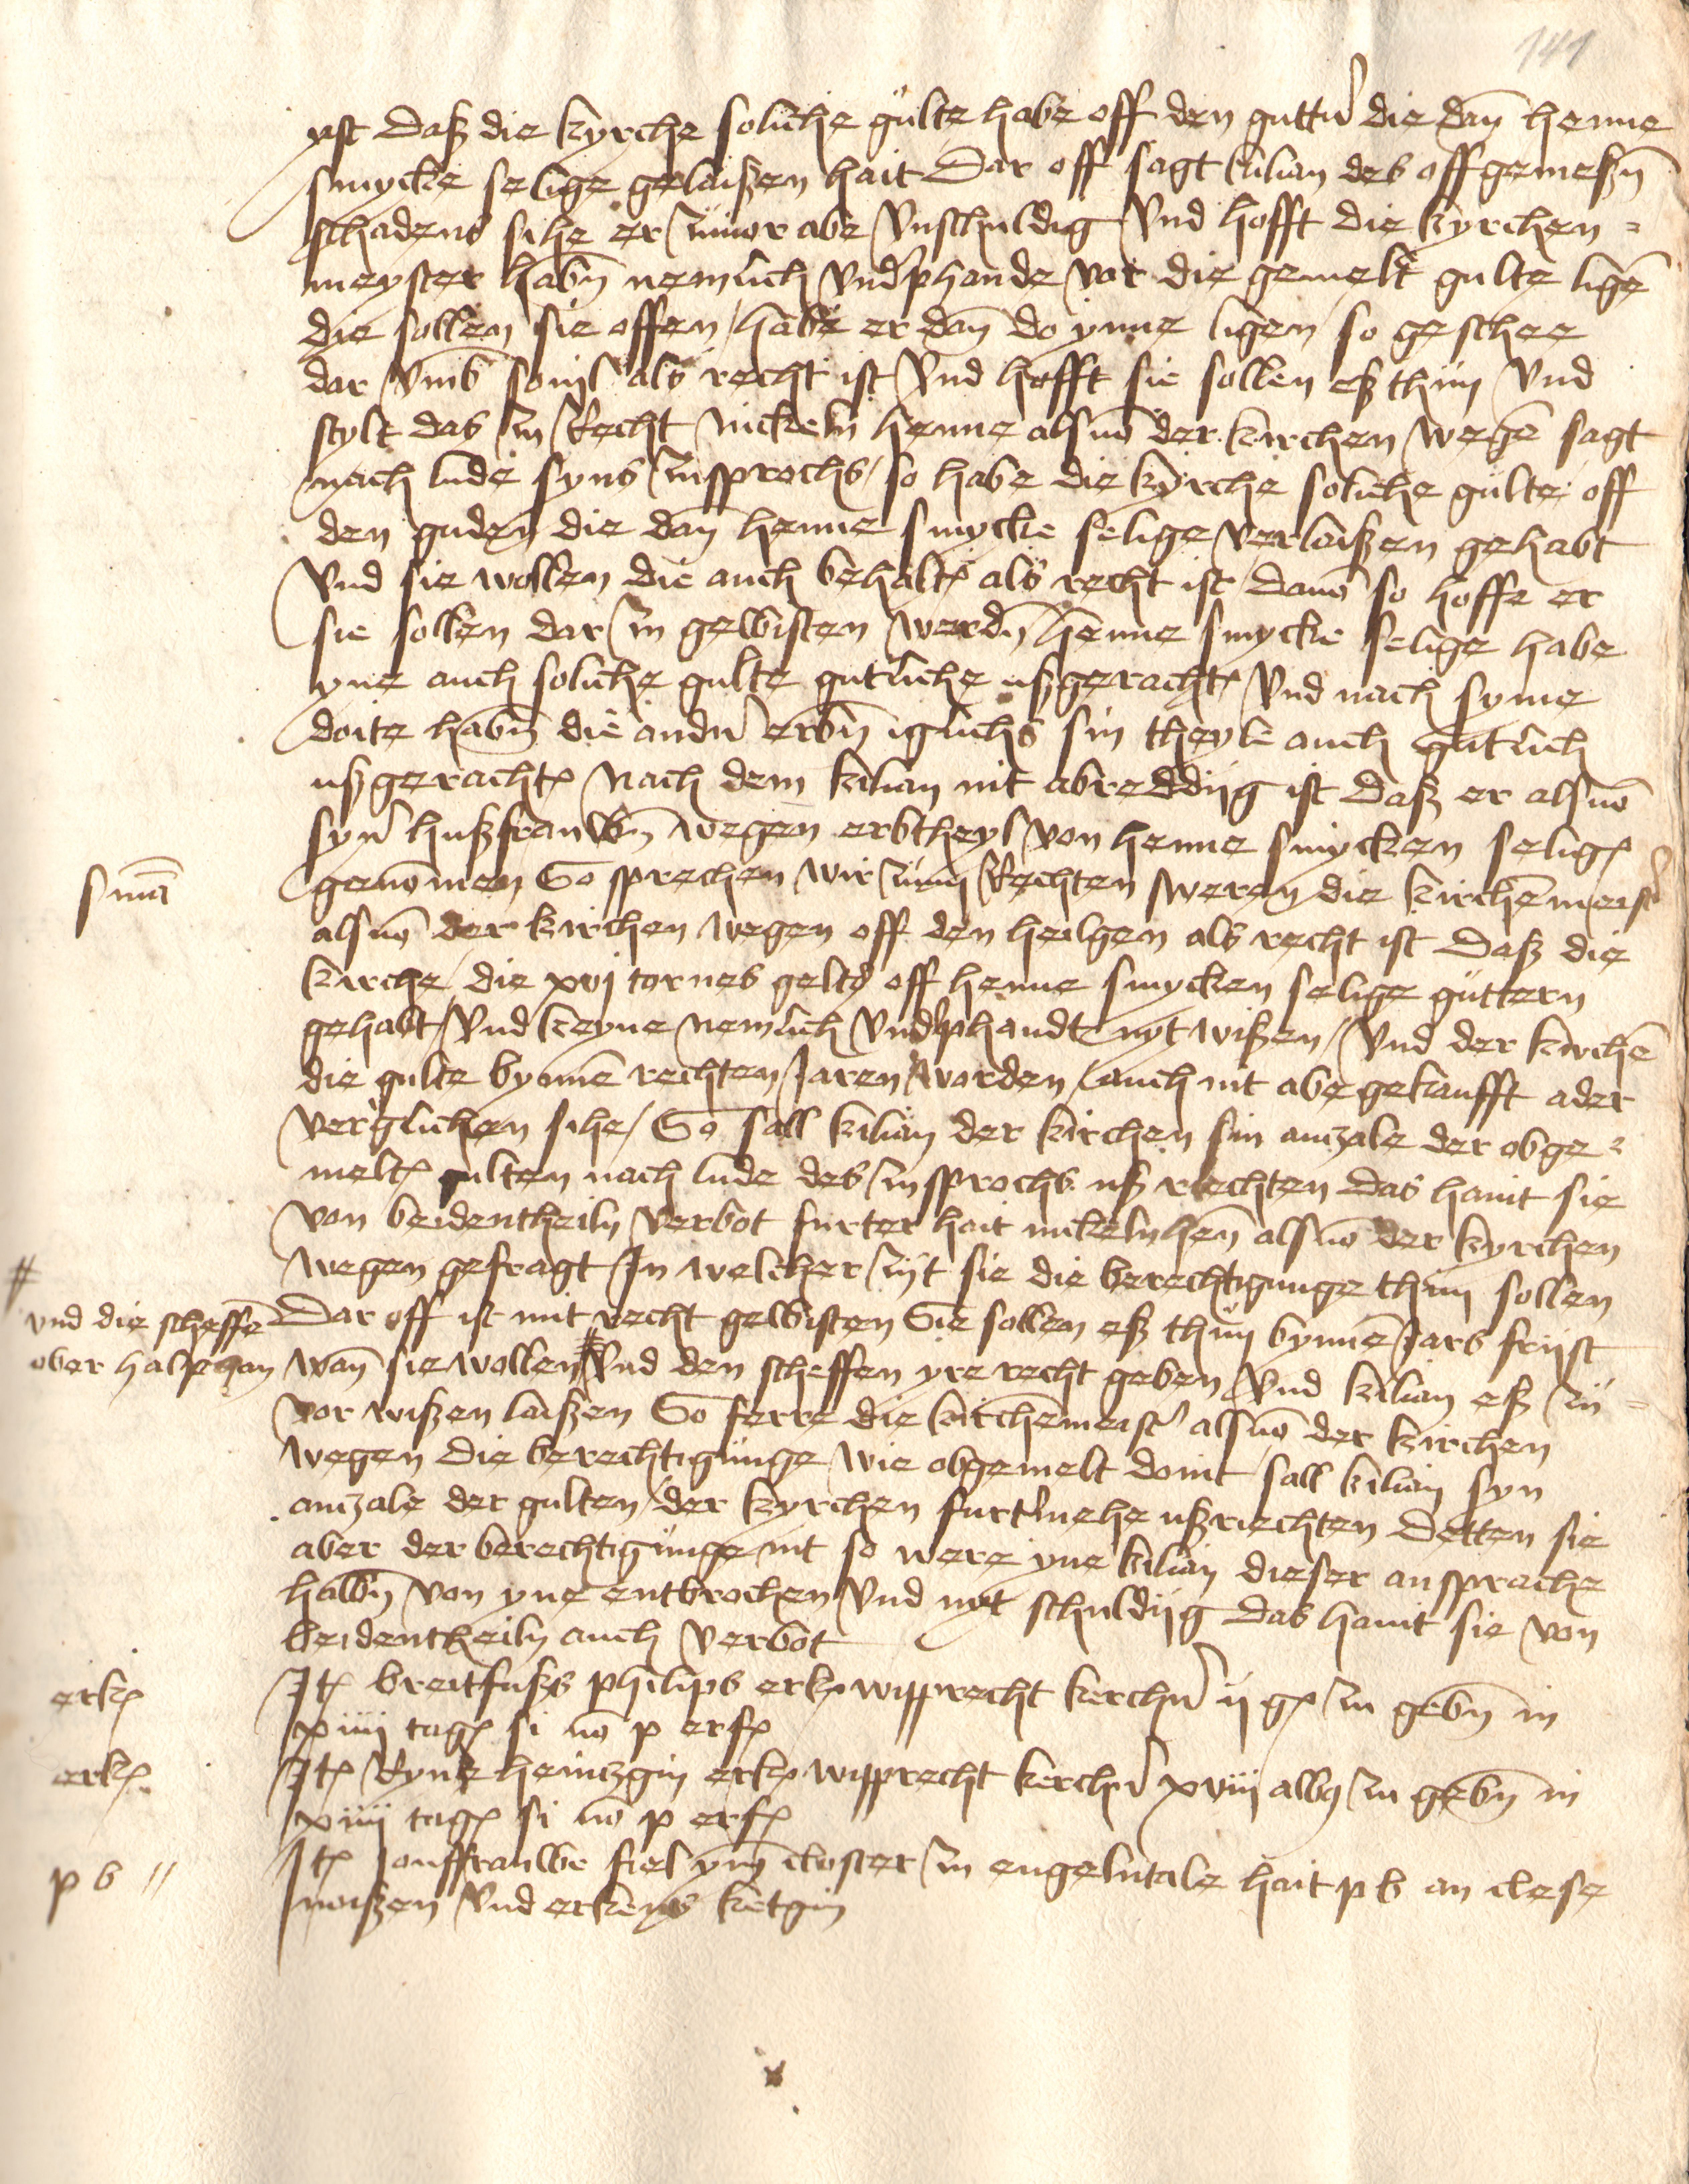 141
ist daß die kyrche soliche gulte habe off den guttern die dan henne
smycke selige gelaißen hait Dar off sagt kilian des offgemeßen
schadens sihe er zuvor abe unschuldig und hofft die kyrchen=
meyster haben nemlich underphande vor die gemelt gulte ligen
die sollen sie offen / habe er dan do ynne ligen / so geschee
dar umb sovil als recht ist und hofft sie sollen eß thun und
stylt das zu Recht nickeln henne als von der kirchen wegen sagt
nach lude syns zuspochs / so habe die kyrche soliche gulte off
den guden die dan henne smycke selige verlaißen gehabt
und sie wollen die auch behalten als recht ist davon so hoffe er
sie sollen dar zu gewisten werden henne smycke selige habe
yne auch soliche gulte gutliche ußgeracht und nach syme
doite haben die andern erben iglichs sin theyle auch gutlich
ußgeracht Nach dem kilian nit abreddiig ist daß er als von
syner hußfrauwen wegen erbtheyl von henne smycken seligen
smā
genommen So sprechen wir zum Rechten sweren die kirchenmeister
als von der kirchen wegen off den heilgen als recht ist daß die
kirche die xvj tornes gelts off henne smycken selige guttern
gehabt / und keyne nemlich underphandt nyt wißen / und der kirchen
die gulte bynnen rechten Jaren worden / auch nit abe gekaufft ader
verglichen sihe / So sall kilian der kirchen sin anzale der obge=
melten gulten nach lude des zusprochs uß riechten das hant sie
von beidentheiln verbot furter hait nickeln hen als von der kyrchen
wegen gefragt In welcher zijt sie die berechtigunge thun sollen
# und die scheffen
ober halpe han
Dar off ist mit recht gewisten Sie sollen eß thun bynnen Jars friist
wan sie wollen # und den scheffen yre recht geben und kilian eß zu=
vor wißen laißen So ferre die kirchenmeister als von der kirchen
wegen die berechtigunge wie obgemelt doint sall kilian syn
anzale der gulten der kyrchen furtmehe ußriechten Detten sie
aber der berechtigunge nit so were yne kilian dieser ansprache
halben von yne entbrochen und nyt schuldiig das hant sie von
beidentheiln auch verbot
erk
Item breitfußs philips erk wipprecht kerchner ij g zu geben in
xiiij tage si non p erf
erk
Item Ryns heintzgin erk wipprecht kerchner xviij albus zu geben in
xiiij tage si non p erf
p b //
Item Jouffrauwe fiel ym closter zu engelntale hait p b an clese
snaißen und erkens ketgin